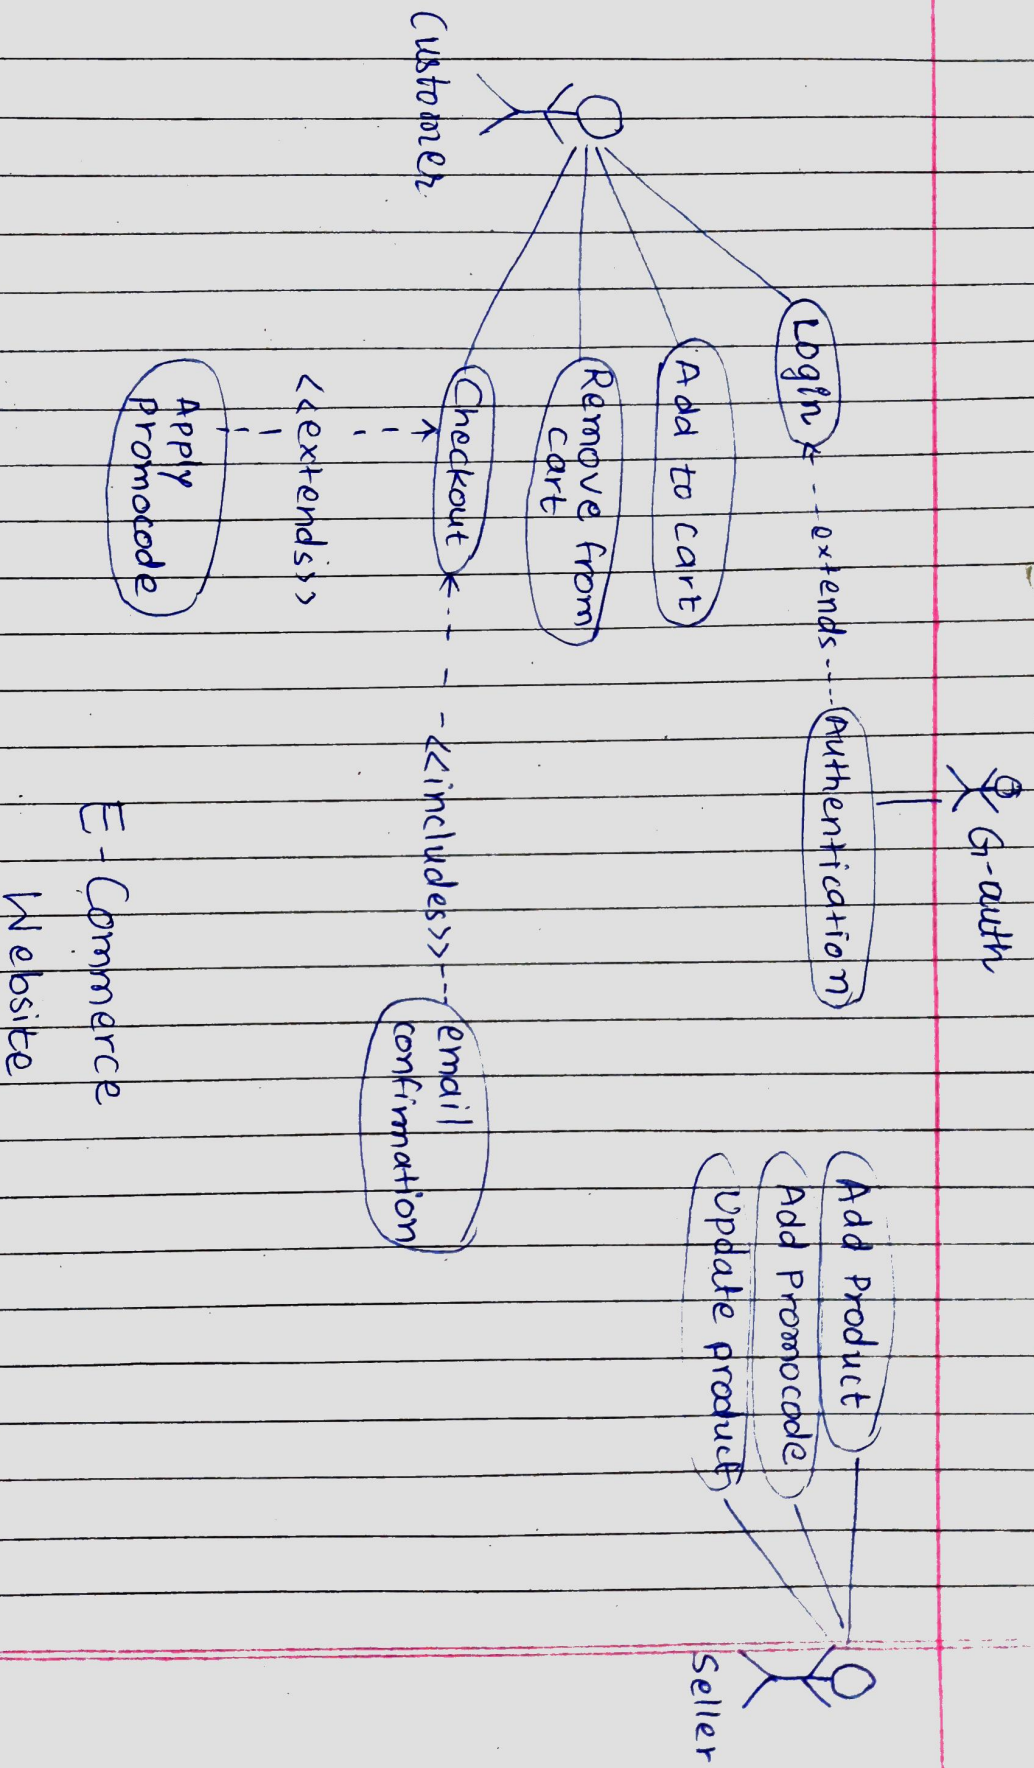 G-auth
Login
extends
Authentication
Add to cart
Remove from
cart
Customer
Checkout
<<includes>>
email
confirmation
<<extends>>
Apply
promocode
Add Product
Add Promocode
Update product
Seller
E-Commerce
Website